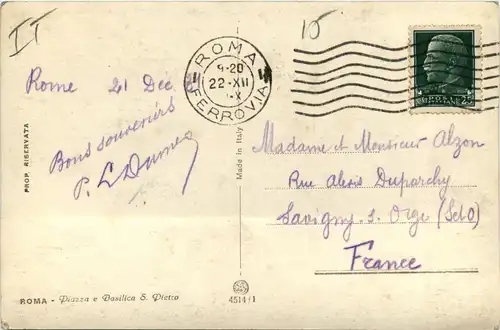 IT
15
ROMA
9-20
22-XII
FERROVIA
Rome 21 Dec
Bons souvenirs
PROP. RISERVATA
Made in Italy
Madame et Monsieur Alzon
Rue Alexis Duparchy
Savigny s. Orge (S et O)
France
ROMA - Piazza e Basilica S. Pietro
4514/1